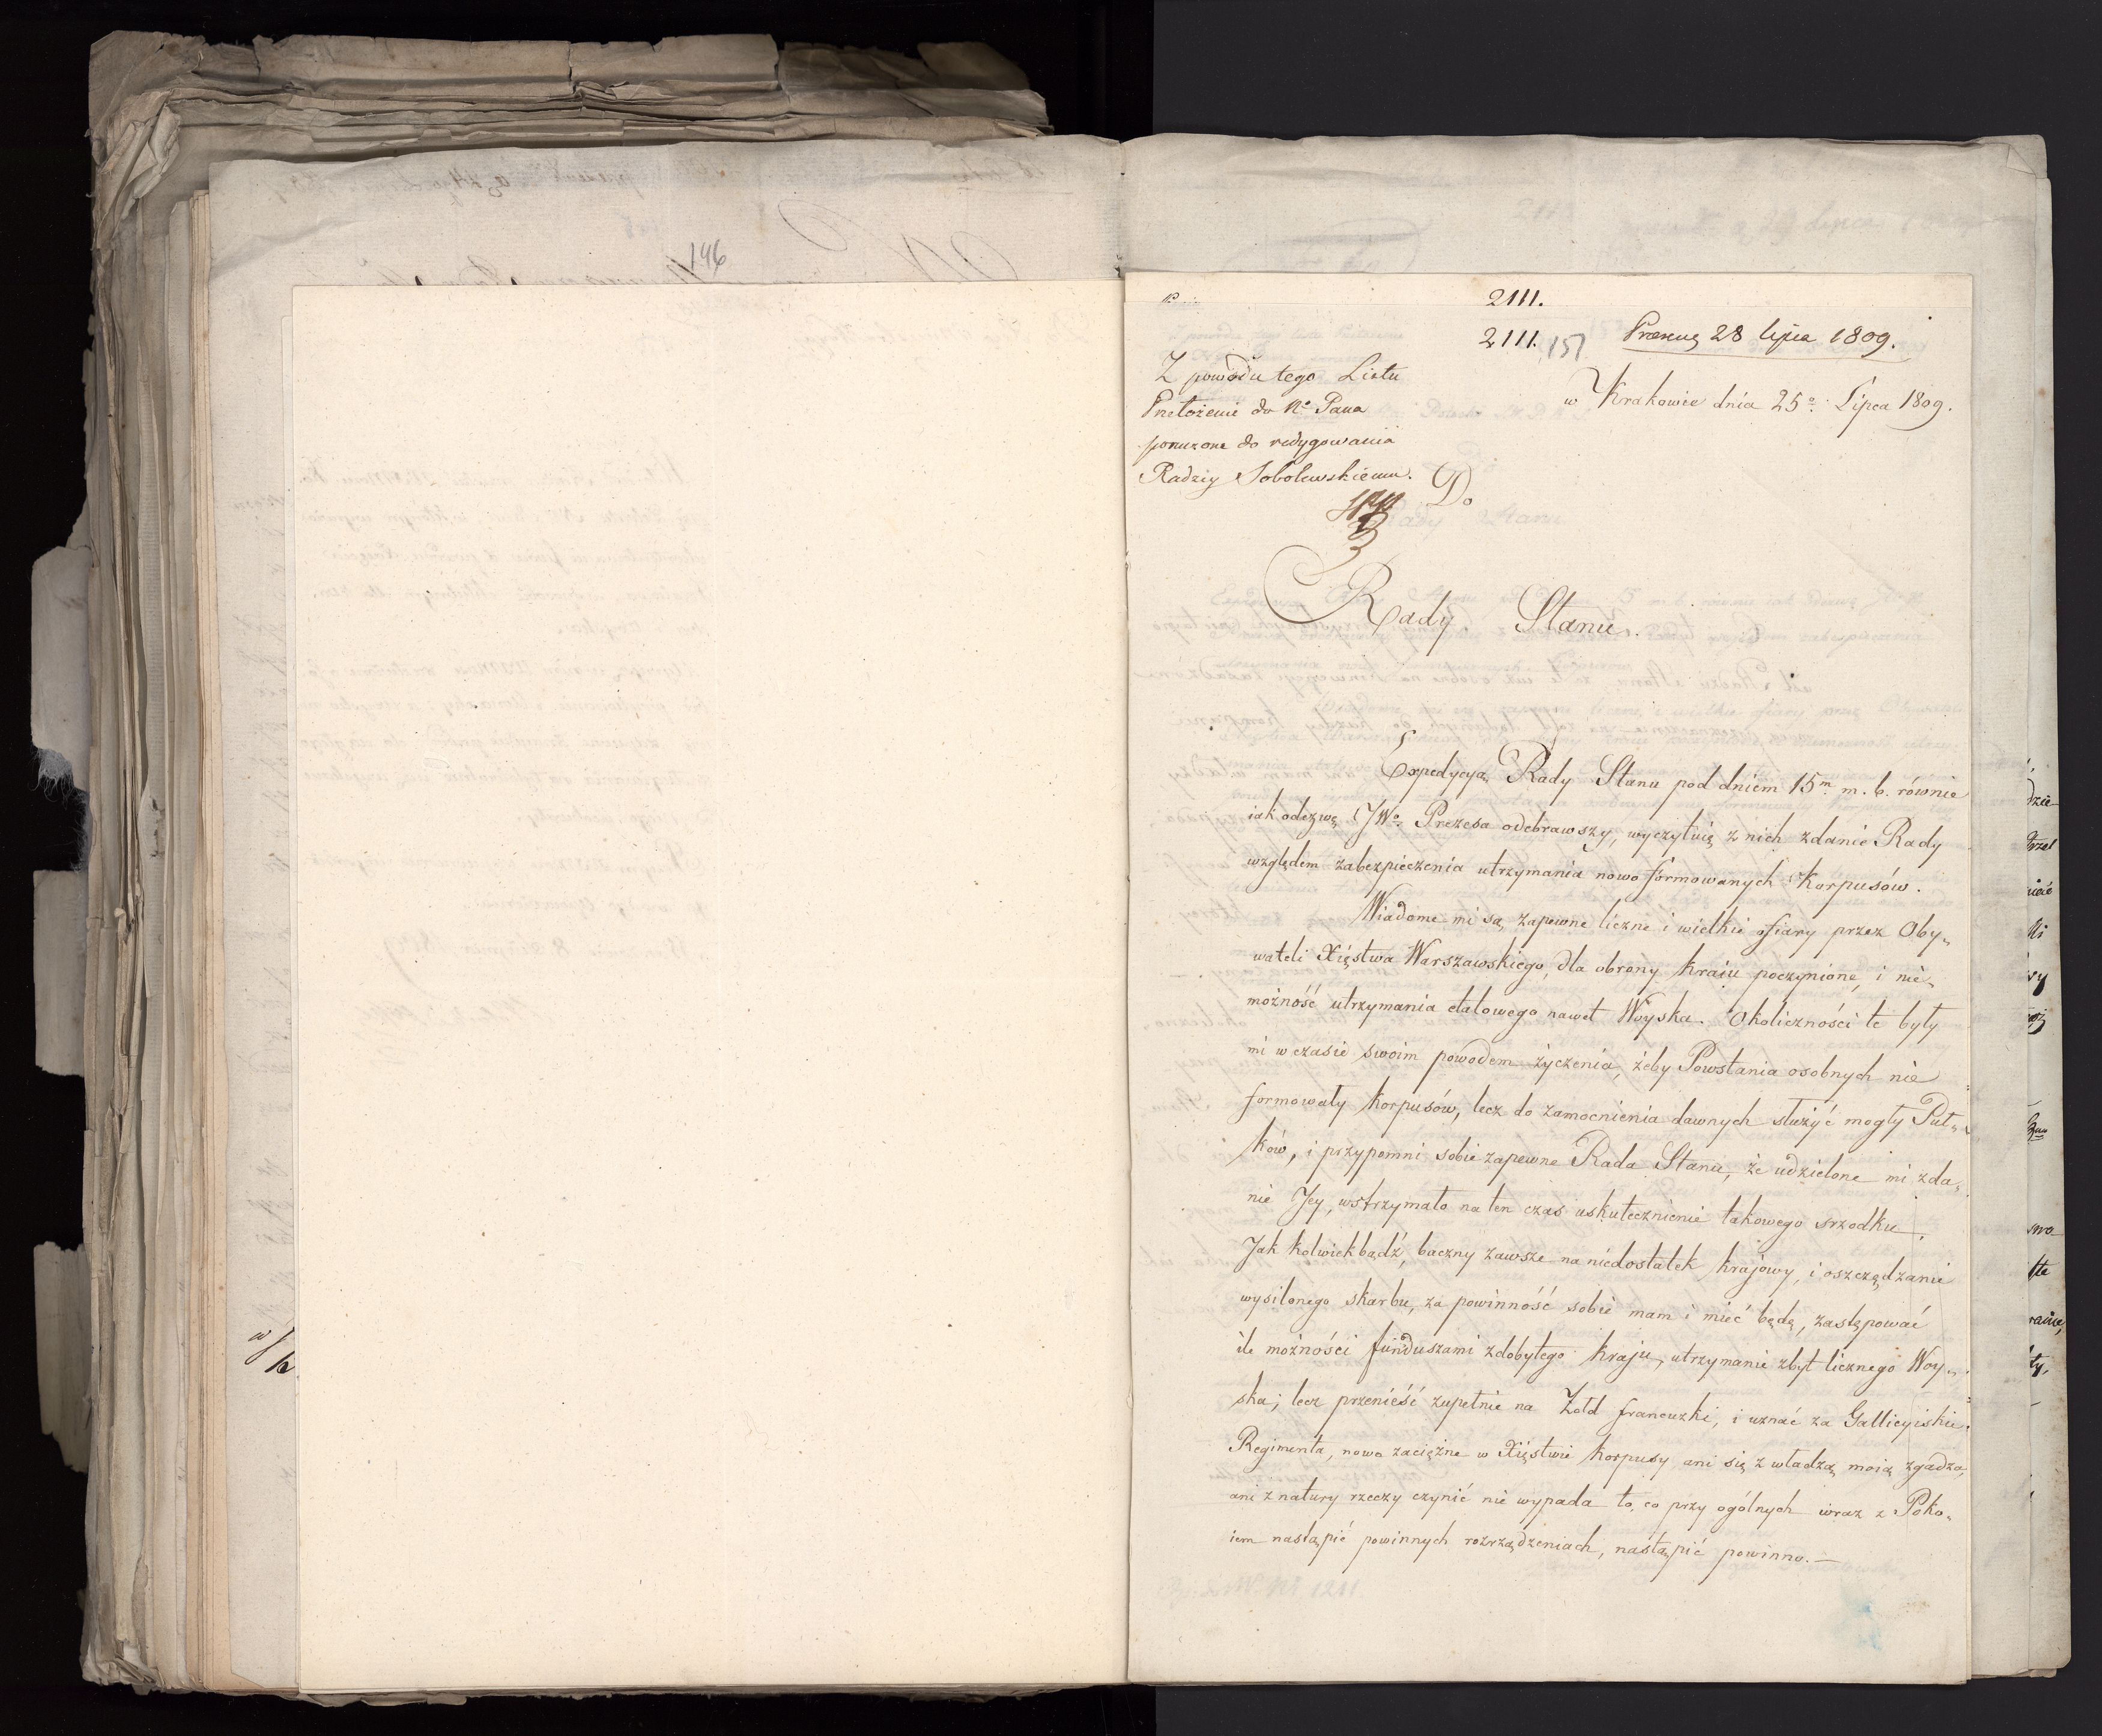 146
2111.
2111. 151 Præsens 28 lipca 1809.
Z powodu tego Listu
Przełożenie do No Pana
poruczone do redygowania
Radzcy Sobolewskiemu.
w Krakowie dnia 25o Lipca 1809.
Do
Rady Stanu.
Expedycyą Rady Stanu pod dniem 15m m. b. równie
iak odezwę JWo Prezesa odebrawszy, wyczytuię z nich zdanie Rady
względem zabezpieczenia utrzymania nowo formowanych Korpusów.
Wiadome mi są zapewne liczne i wielkie ofiary przez Oby„
wateli Xięstwa Warszawskiego, dla obrony kraiu poczynione, i nie„
możność utrzymania etatowego nawet Woyska. Okoliczności te były
mi w czasie swoim powodem życzenia, żeby Powstania osobnych nie
formowały Korpusów, lecz do zamocnienia dawnych służyć mogły Puł„
ków, i przypomni sobie zapewne Rada Stanu, że udzielone mi zda„
nie Jey, wstrzymało na ten czas uskutecznienie takowego srzodku.
Jak kolwiek bądź, baczny zawsze na niedostatek krajowy, i oszczędzanie
wysilonego skarbu, za powinność sobie mam i mieć będę, zastępować
ile możności funduszami zdobytego kraju, utrzymanie zbyt licznego Woy„
ska; lecz przenieść zupełnie na Żołd francuzki, i uznać za Gallicyiskie
Regimenta, nowo zaciężne w Xięstwie Korpusy ani się z władzą moią zgadza,
ani z natury rzeczy czynić nie wypada to, co przy ogólnych wraz z Poko„
iem nastąpić powinnych rozrządzeniach, nastąpić powinno.—